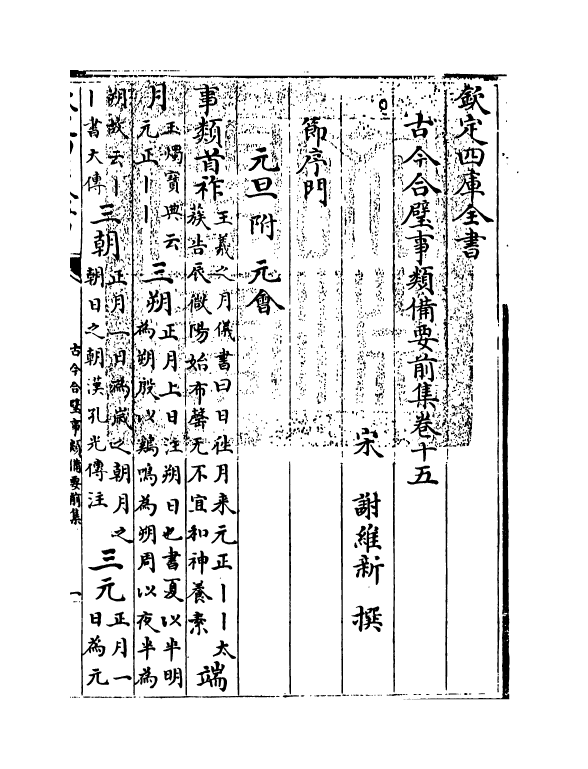 欽定四庫全書
古今合璧事類備要前集卷十五
宋 謝維新 撰
節序門
元旦附 元會
事類首祚王羲之月儀書曰日往月来元正丨丨太
蔟告辰微陽始布罄无不宜和神養素端
月玉燭寶典云
元正丨丨三朔正月上日注朔日也書夏以半明
為朔殷以鷄鳴為朔周以夜半為
朔故云丨
丨書大傳三朝正月一日為歲之朝月之
朝日之朝漢孔光傳注三元正月一
日為元
古今合璧事類備要前集
一